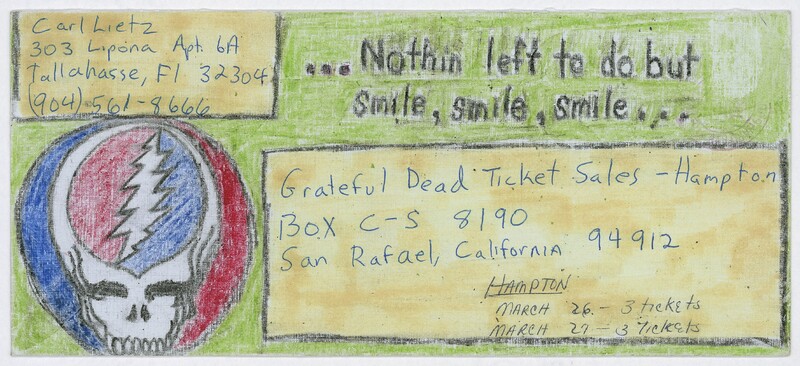 Carl Lietz
303 Lipona Apt. 6A
Tallahasse, Fl 32304
(904) 561-8666
...Nothin left to do but
smile, smile, smile...
Grateful Dead Ticket Sales - Hampton
Box C-S 8190
San Rafael, California 94912
HAMPTON
MARCH 26 - 3 tickets
MARCH 27 - 3 Tickets